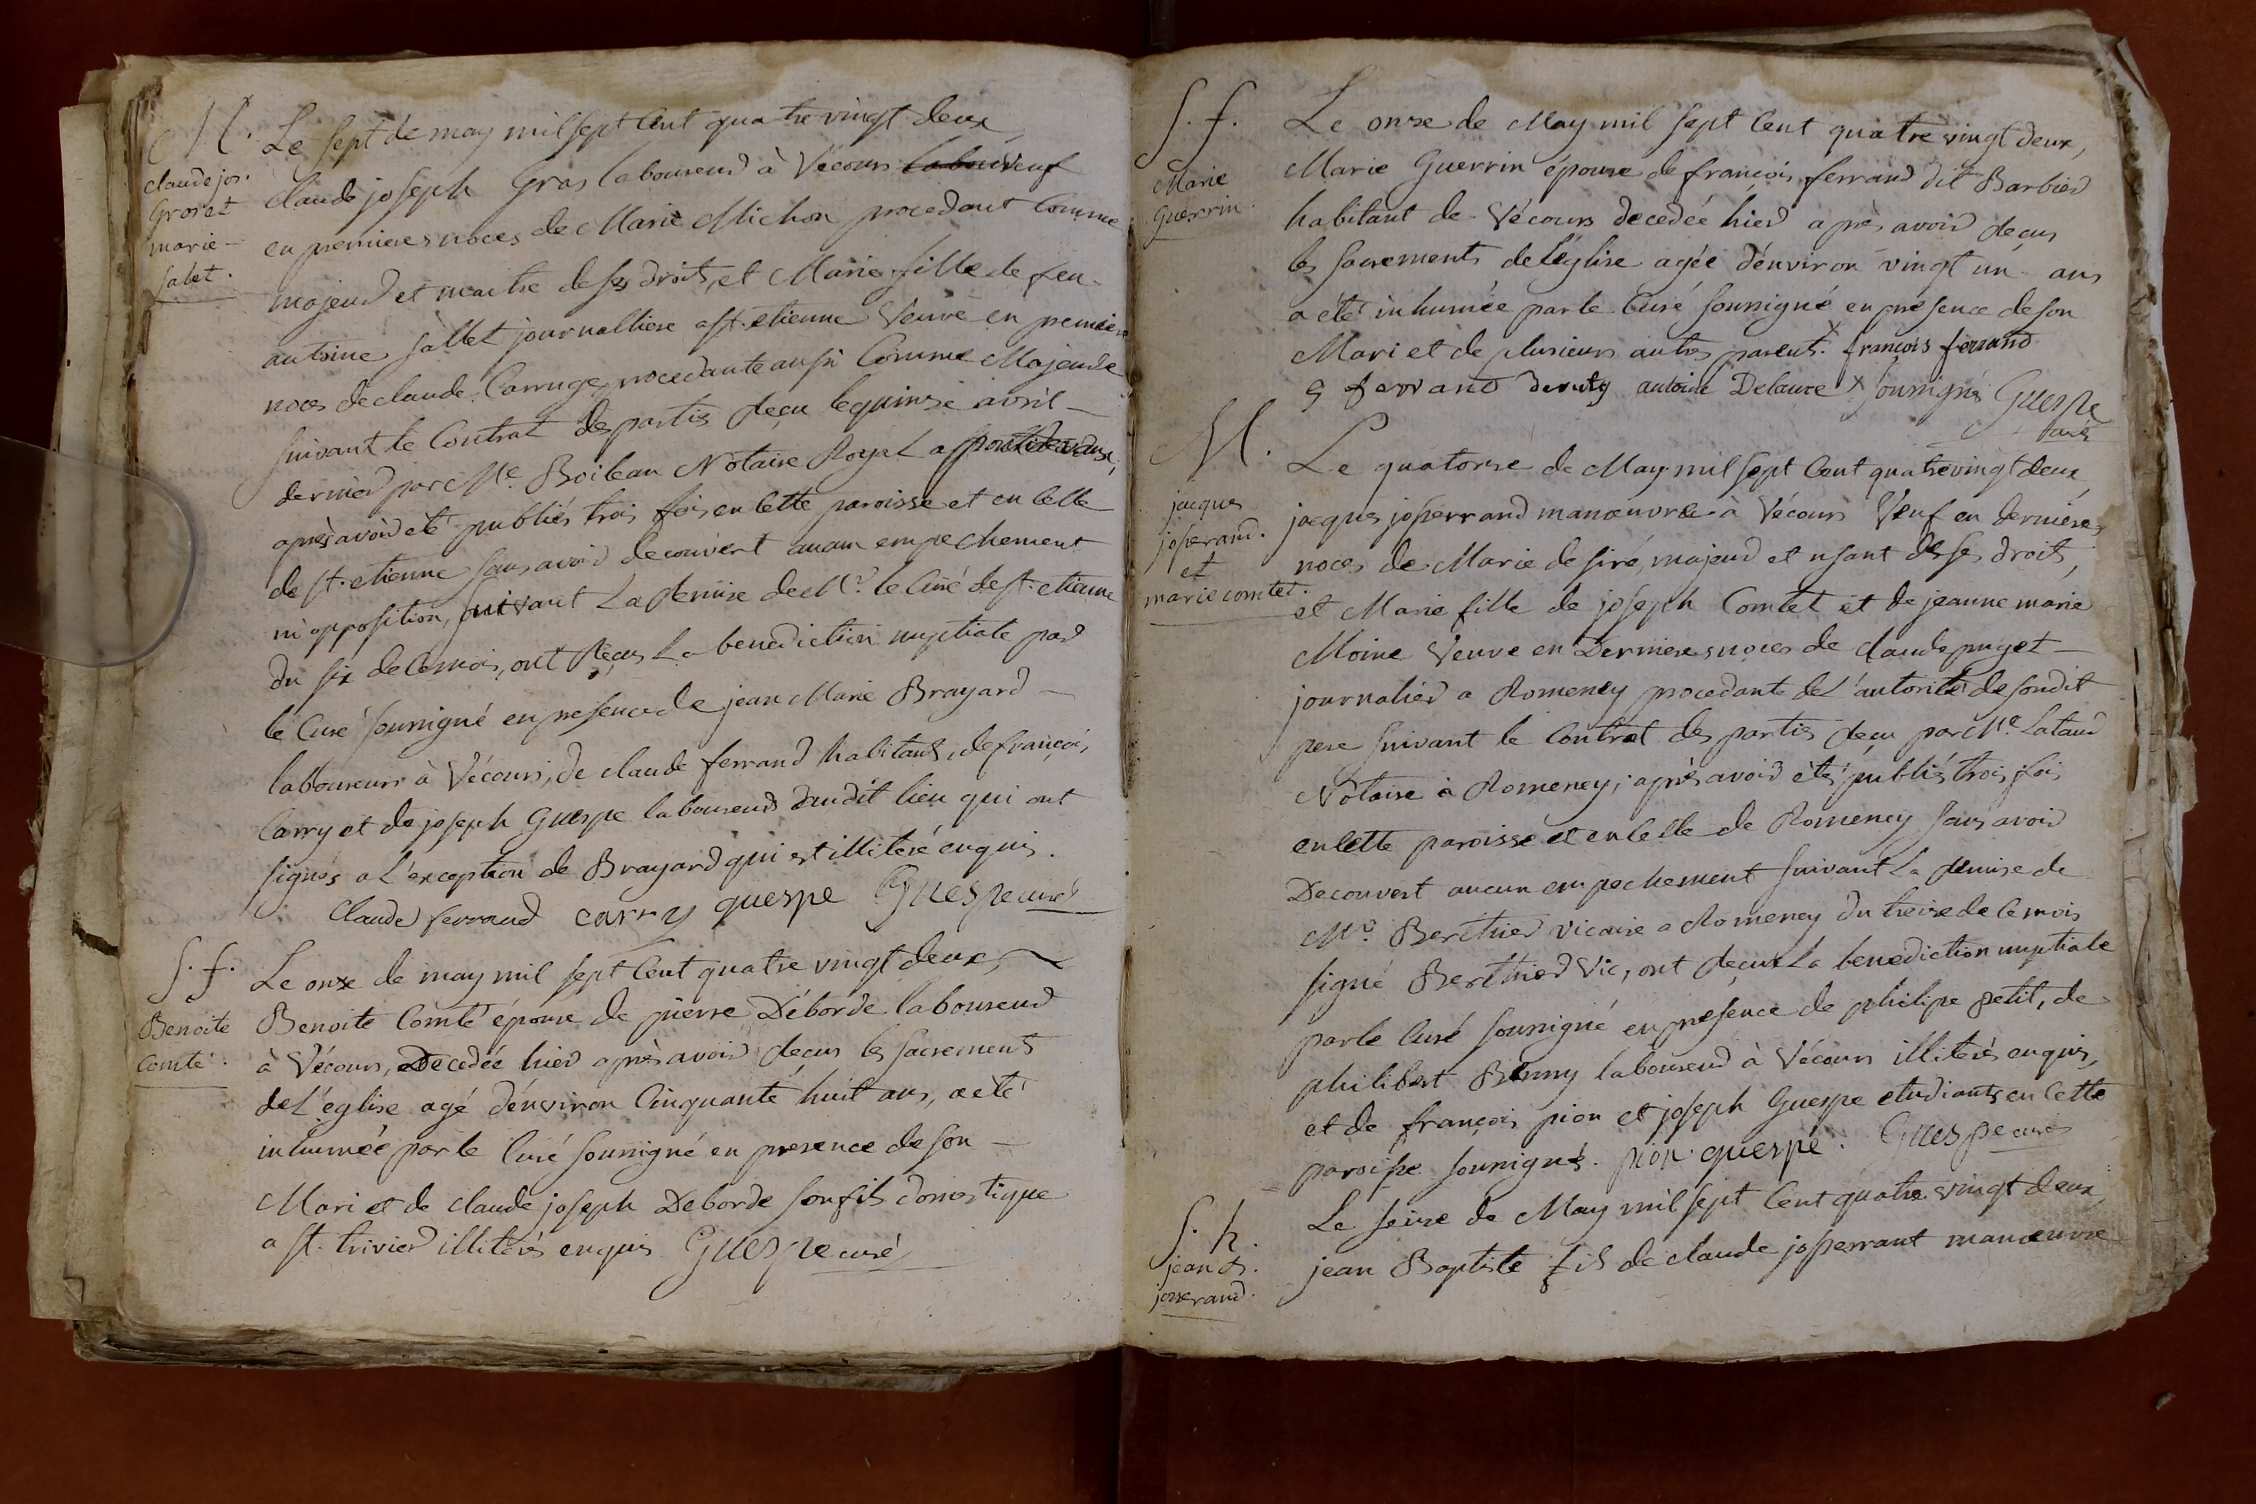 M.
claude jos.
Gros et
marie
Salet.
Le sept de may mil sept cent quatre vingt deux
claude joseph Gros laboureur à Vécours veuf
en premieres noces de Marie Michon procedant comme
majeur et maitre de ses droits, et Marie fille de feu
antoine Sallet journalliere a st. etienne Veuve en premiere
noces de claude Carruge, procedante aussi comme Majeure
suivant le Contrat des partis reçu le quinze avril
dernier par Me. Boileau Notaire Royal a
après avoir été publiés trois fois en cette paroisse et en celle
de st. etienne sans avoir decouvert aucun empechement
ni opposition, suivant La remise de Mr. le Curé de st. etienne
du six de ce mois, ont reçus La benediction nuptiale par
le Curé soussigné en presence de jean Marie Brayard
laboureur à Vécours, de claude ferrand habitant, de françois
Carry et de joseph Guespe laboureurs dudit lieu qui ont
signés a l'exception de Brayard qui est illiteré enquis.
Claude ferrand carry guespe Guespe curé
S. f.
Benoite
Comte.
Le onze de may mil sept cent quatre vingt deux,
Benoite Comte épouse de pierre Déborde laboureur
à Vécours, Decedée hier après avoir reçus les sacrements
de L'église agé d'environ Cinquante huit ans, a été
inhumée par le Curé soussigné en presence de son
Mari et de claude joseph Deborde son fils domestique
a st. trivier illiterés enquis Guespe curé
S. f.
Marie
Guerrin.
Le onze de May mil sept cent quatre vingt deux,
Marie Guerrin épouse de françois ferrand dit Barbier
habitant de Vécours decedée hier après avoir reçus
les sacrements de L'église agée d'environ vingt un ans
a été inhumée par le Curé soussigné en presence de son
Mari et de plusieurs autres parents. x françois ferrand
ferrand antoine Delaure x soussignés Guespe
curé
M.
jacques
joserand.
et
marie comtet.
Le quatorze de May mil sept cent quatre vingt deux
jacques josserrand manœuvre à Vécours Veuf en dernieres
noces de Marie desiré, majeur et usant de ses droits,
et Marie fille de joseph Comtet et de jeanne marie
Moine Veuve en Dernieres noces de claude puget
journalier a Romeney procedante de L'autorité de sondit
pere suivant le Contrat des parties reçu par Me. Lataud
Notaire à Romeney; après avoir étés publiés trois fois
en cette paroisse et en celle de Romeney sans avoir
Decouvert aucun empechement suivant La remise de
Mr. Berthier vicaire a Romeney du treize de ce mois
signé Berthier Vic, ont reçus La benediction nuptiale
par le Curé soussigné en presence de philipe petit, de
philibert Benny laboureur à Vécours illiterés enquis,
et de françois pion et joseph Guespe etudiants en cette
paroisse soussignés. pion. guespe. Guespe curé
S. h.
jean B.
josserand.
Le seize de May mil sept cent quatre vingt deux,
jean Baptiste fils de claude josserrant manœuvre